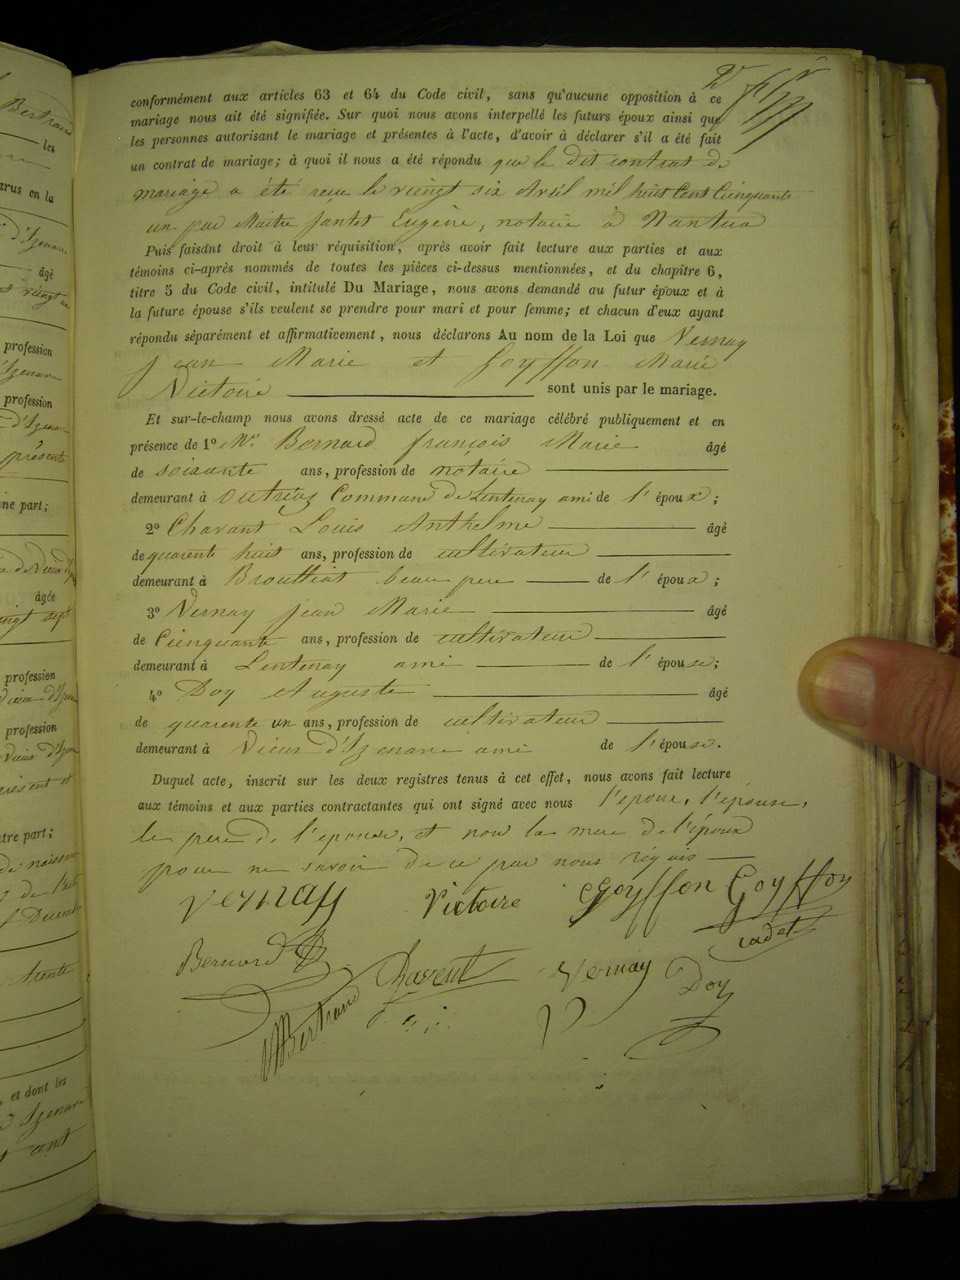 conformément aux articles 63 et 64 du Code civil, sans qu'aucune opposition à ce
mariage nous ait été signifiée. Sur quoi nous avons interpellé les futurs époux ainsi que
les personnes autorisant le mariage et présentes à l'acte, d'avoir à déclarer s'il a été fait
un contrat de mariage; à quoi il nous a été répondu que le dit contrat de
mariage a été reçu le vieingt six Avril mil huit Cent Cienquante
un par Maitre Jantet Eugène, notaire à Nantua
Puis faisant droit à leur réquisition, après avoir fait lecture aux parties et aux
témoins ci-après nommés de toutes les pièces ci-dessus mentionnées, et du chapitre 6,
titre 5 du Code civil, intitulé Du Mariage, nous avons demandé au futur époux et à
la future épouse s'ils veulent se prendre pour mari et pour femme; et chacun d'eux ayant
répondu séparément et affirmativement, nous déclarons Au nom de la Loi que Vernay
Jean Marie et Goyffon Marie
Victoire sont unis par le mariage.
Et sur-le-champ nous avons dressé acte de ce mariage célébré publiquement et en
présence de 1° Mr. Bernard françois Marie âgé
de soixante ans, profession de notaire
demeurant à Outriaz Commune de Lentenay ami de l'époux;
2° Chavant Louis Anthelme âgé
de quarente huit ans, profession de cultivateur
demeurant à Brouillat beau pere de l'époux;
3° Vernay Jean Marie âgé
de Cienquante ans, profession de cultivateur
demeurant à Lentenay ami de l'épouse;
4° Doy Auguste âgé
de quarente un ans, profession de cultivateur
demeurant à Vieux d'Izenave ami de l'épouse.
Duquel acte, inscrit sur les deux registres tenus à cet effet, nous avons fait lecture
aux témoins et aux parties contractantes qui ont signé avec nous l'époux, l'épouse,
le pere de l'epouse, et non la mere de l'époux
pour ne savoir de ce par nous réquis
Vernay Victoire Goyffon Goyffon
cadet
Bernard Chavent Vernay Doy
Bertrand